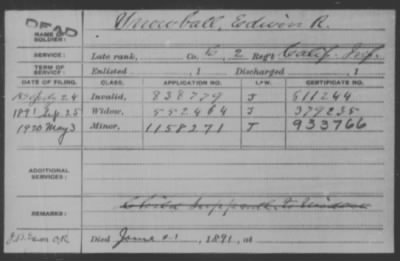 DEAD
NAME OF SOLDIER: Snowball, Edwin R.
SERVICE: Late rank, Co. D, 2 Reg't Calif. Inf.
TERM OF SERVICE: Enlisted , 1 Discharged , 1
DATE OF FILING. CLASS. APPLICATION NO. LAW. CERTIFICATE NO.
24 Invalid, 838779 J 611244
1891 Sep. 25 Widow, 552464 J 379235
1920 May 3 Minor, 1158271 J 933766
ADDITIONAL SERVICES:
REMARKS:
Died June 21, 1891, at